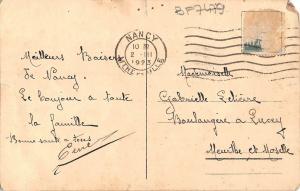 BF7479
NANCY
10 30
2 - III
1923
MTHE-ET-MLLE
Meilleurs Baisers
de Nancy
Le bonjour a toute
la famille
Bonne santé a tous
Mademoiselle
Gabrielle Lelièvre
Boulangère a Lucey
Meurthe et Moselle